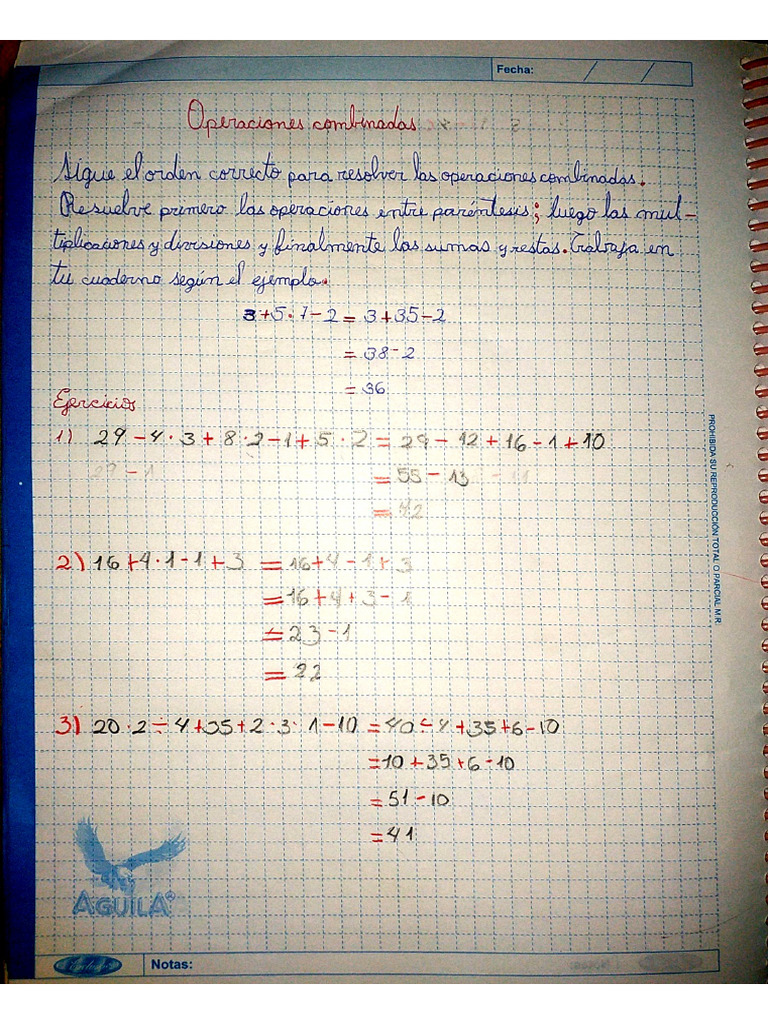 Fecha: / /
Operaciones combinadas
Sigue el orden correcto para resolver las operaciones combinadas.
Resuelve primero las operaciones entre paréntesis; luego las mul-
tiplicaciones y divisiones y finalmente las sumas y restas. Trabaja en
tu cuaderno según el ejemplo.
3+5·7-2 = 3+35-2
= 38-2
= 36
Ejercicios
1) 29-4·3+8·2-1+5·2 = 29-12+16-1+10
= 55-13
= 42
2) 16+4·1-1+3 = 16+4-1+3
= 16+4+3-1
= 23-1
= 22
3) 20·2÷4+35+2·3·1-10 = 40÷4+35+6-10
= 10+35+6-10
= 51-10
= 41
AGUILA®
Notas:
PROHIBIDA SU REPRODUCCIÓN TOTAL O PARCIAL M.R.